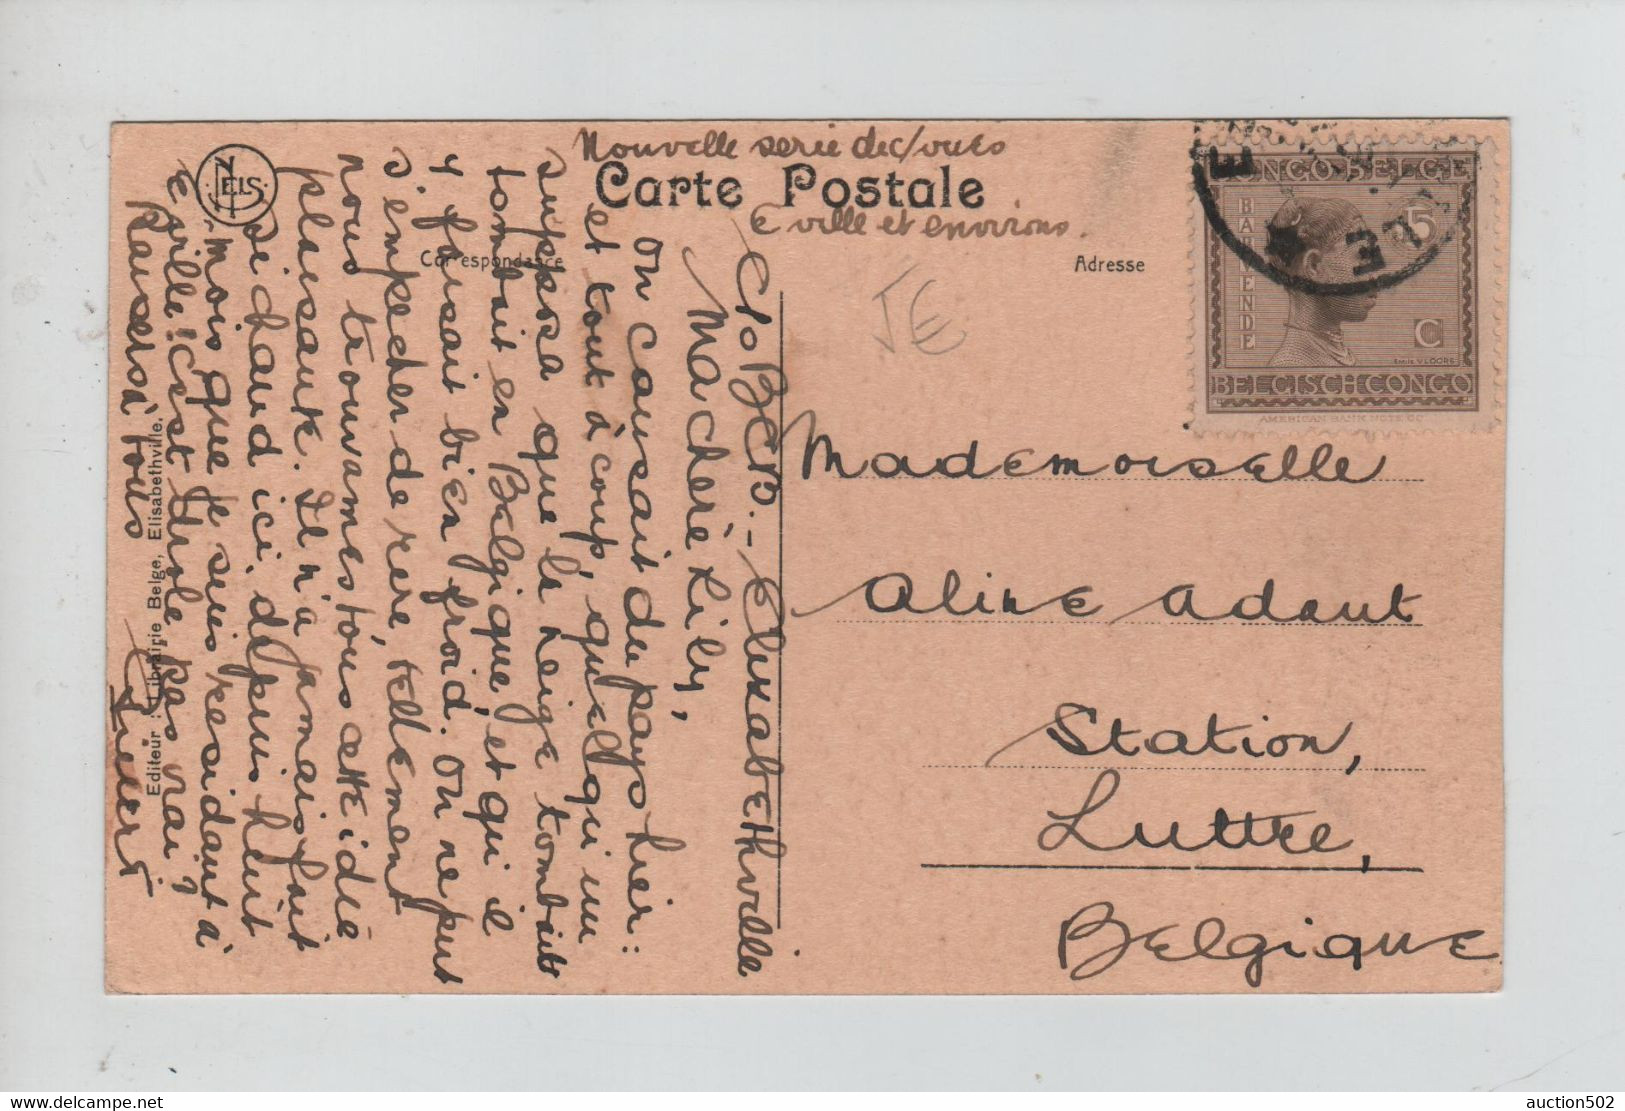 Nouvelle serie de c/vues
Carte Postale
E ville et environs.
Correspondance
Adresse
NELS
JE
CONGO BELGE
BARUMBENDE
15
C
EMILE VLOORS
BELGISCH CONGO
AMERICAN BANK NOTE CO
C/o B.C.K. - Elisabethville
Ma chère Lily,
On causait du pays hier :
et tout à coup, quelqu'un
supposa que la neige tombait
tombait en Belgique, et qu'il
y faisait bien froid. On ne put
s'empêcher de rire, tellement
nous trouvâmes tous cette idée
plaisante. Il n'a jamais fait
si chaud ici, depuis huit
mois que je suis résidant à
E'ville ! C'est drôle, pas vrai ?
Bauser à tous
Editeur : Librairie Belge, Elisabethville.
Mademoiselle
Aline Adant
Station,
Luttre,
Belgique
auction502